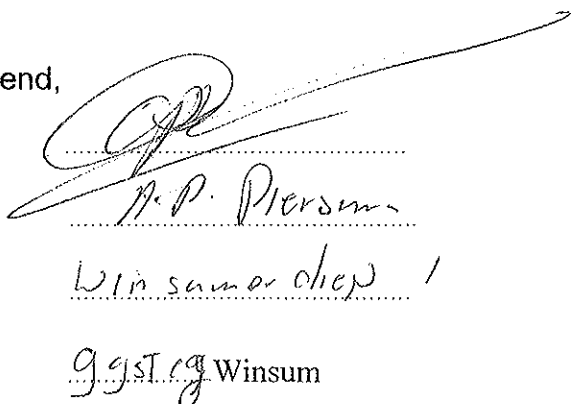 end,
A.P. Piersma
Winsumerdiep 1
Winsum